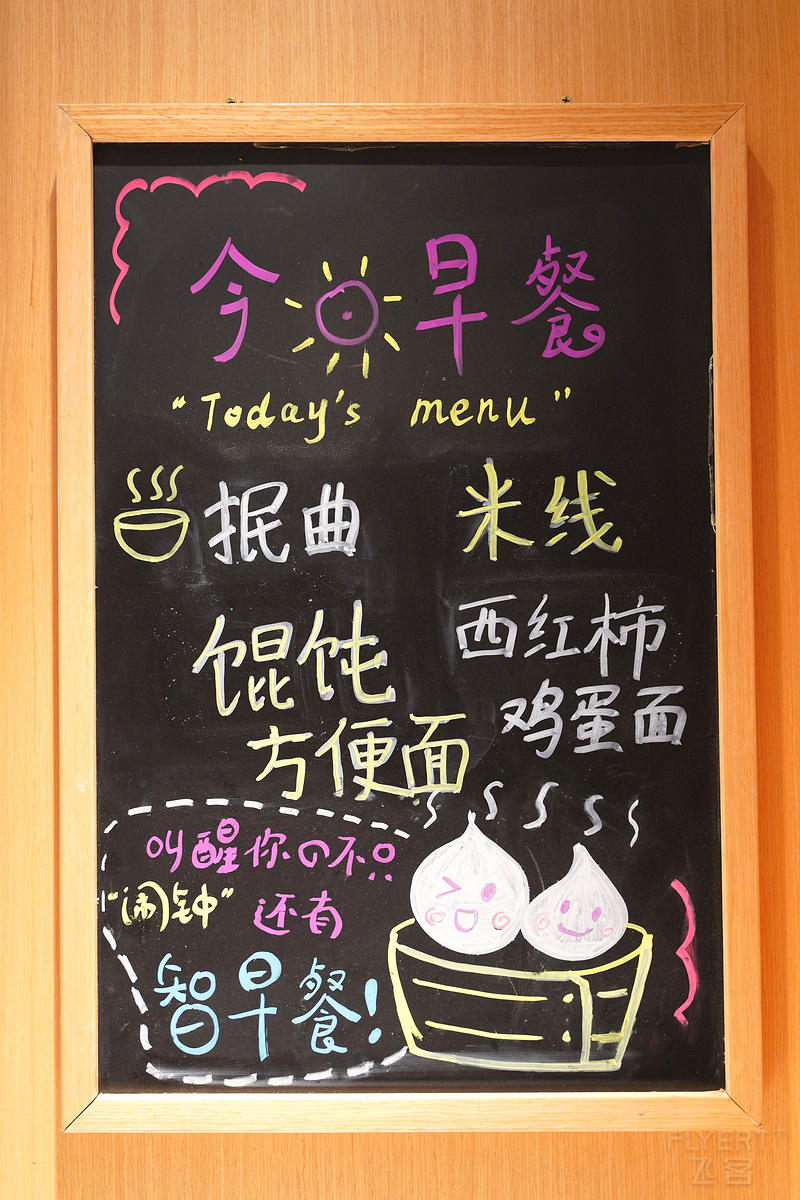 今 早餐
"Today's menu"
抿曲 米线
馄饨 西红柿
鸡蛋面
方便面
叫醒你の不只
"闹钟" 还有
智早餐!
FLYERT
飞客